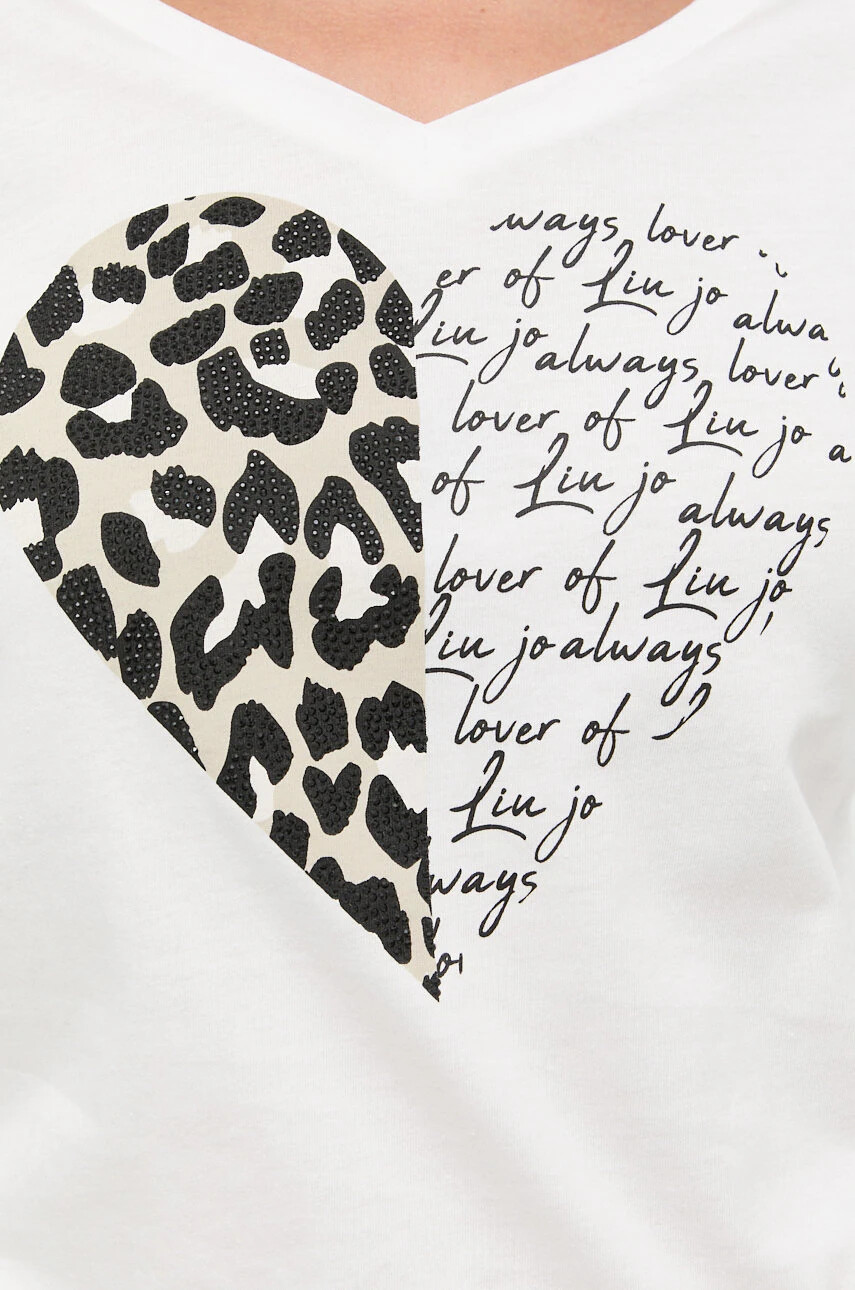 ways lover
er of Liu jo
alwa
Liu jo always lover
lover of Liu jo a
of Liu jo always
lover of Liu jo
Liu jo always
lover of
Liu jo
ways